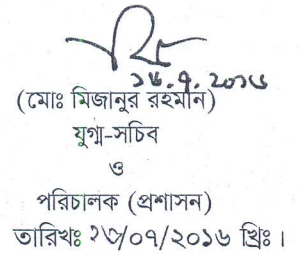 ১৮.৭.২০১৬
(মোঃ মিজানুর রহমান)
যুগ্ম-সচিব
ও
পরিচালক (প্রশাসন)
তারিখঃ /০৭/২০১৬ খ্রিঃ।